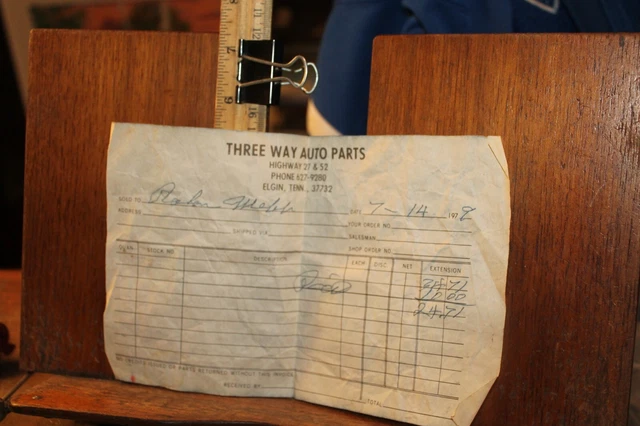 THREE WAY AUTO PARTS
HIGHWAY 27 & 52
PHONE 627-9280
ELGIN, TENN., 37732
SOLD TO
DATE 7-14 1978
ADDRESS
YOUR ORDER NO.
SHIPPED VIA
SALESMAN
SHOP ORDER NO.
QUAN. STOCK NO. DESCRIPTION EACH DISC. NET EXTENSION
Paid
34.71
10.00
24.71
NO CREDITS ISSUED OR PARTS RETURNED WITHOUT THIS INVOICE
RECEIVED BY
TOTAL